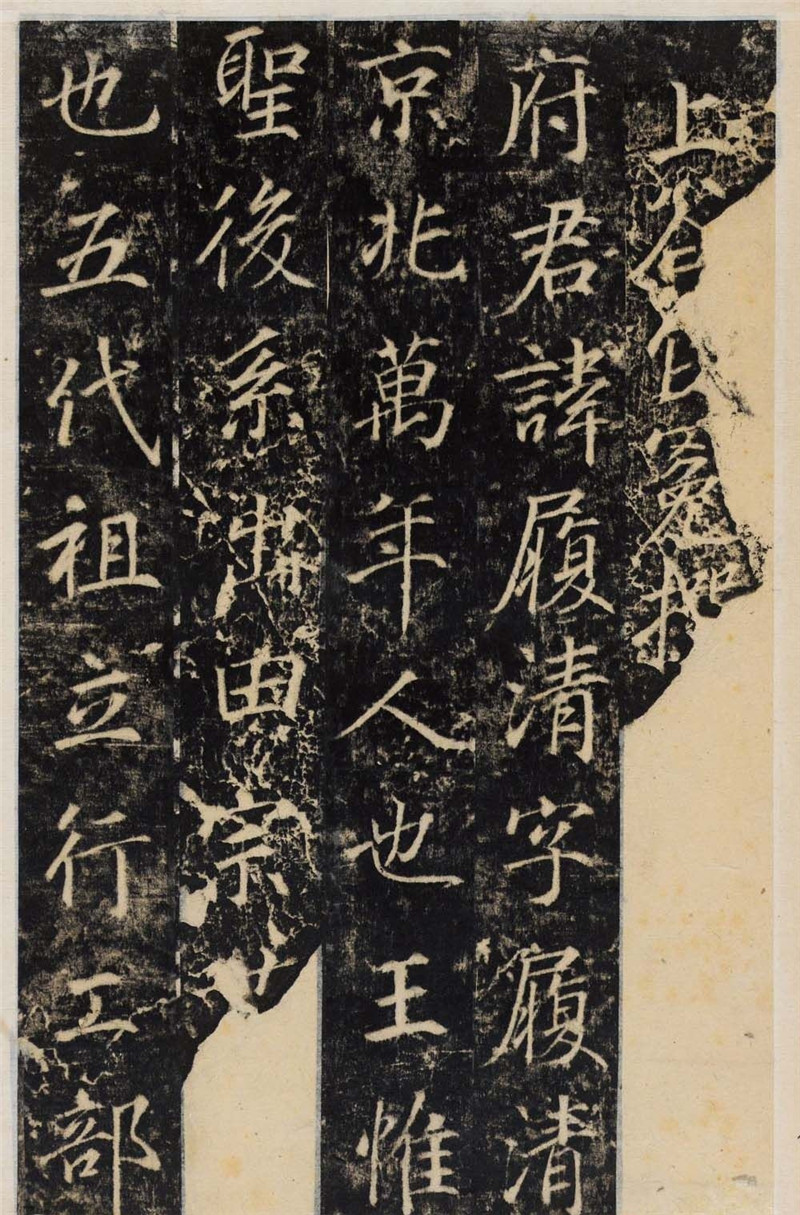 上冤抑
府君諱履清字履清
京兆萬年人也王惟
聖後系由宗
也五代祖立行工部